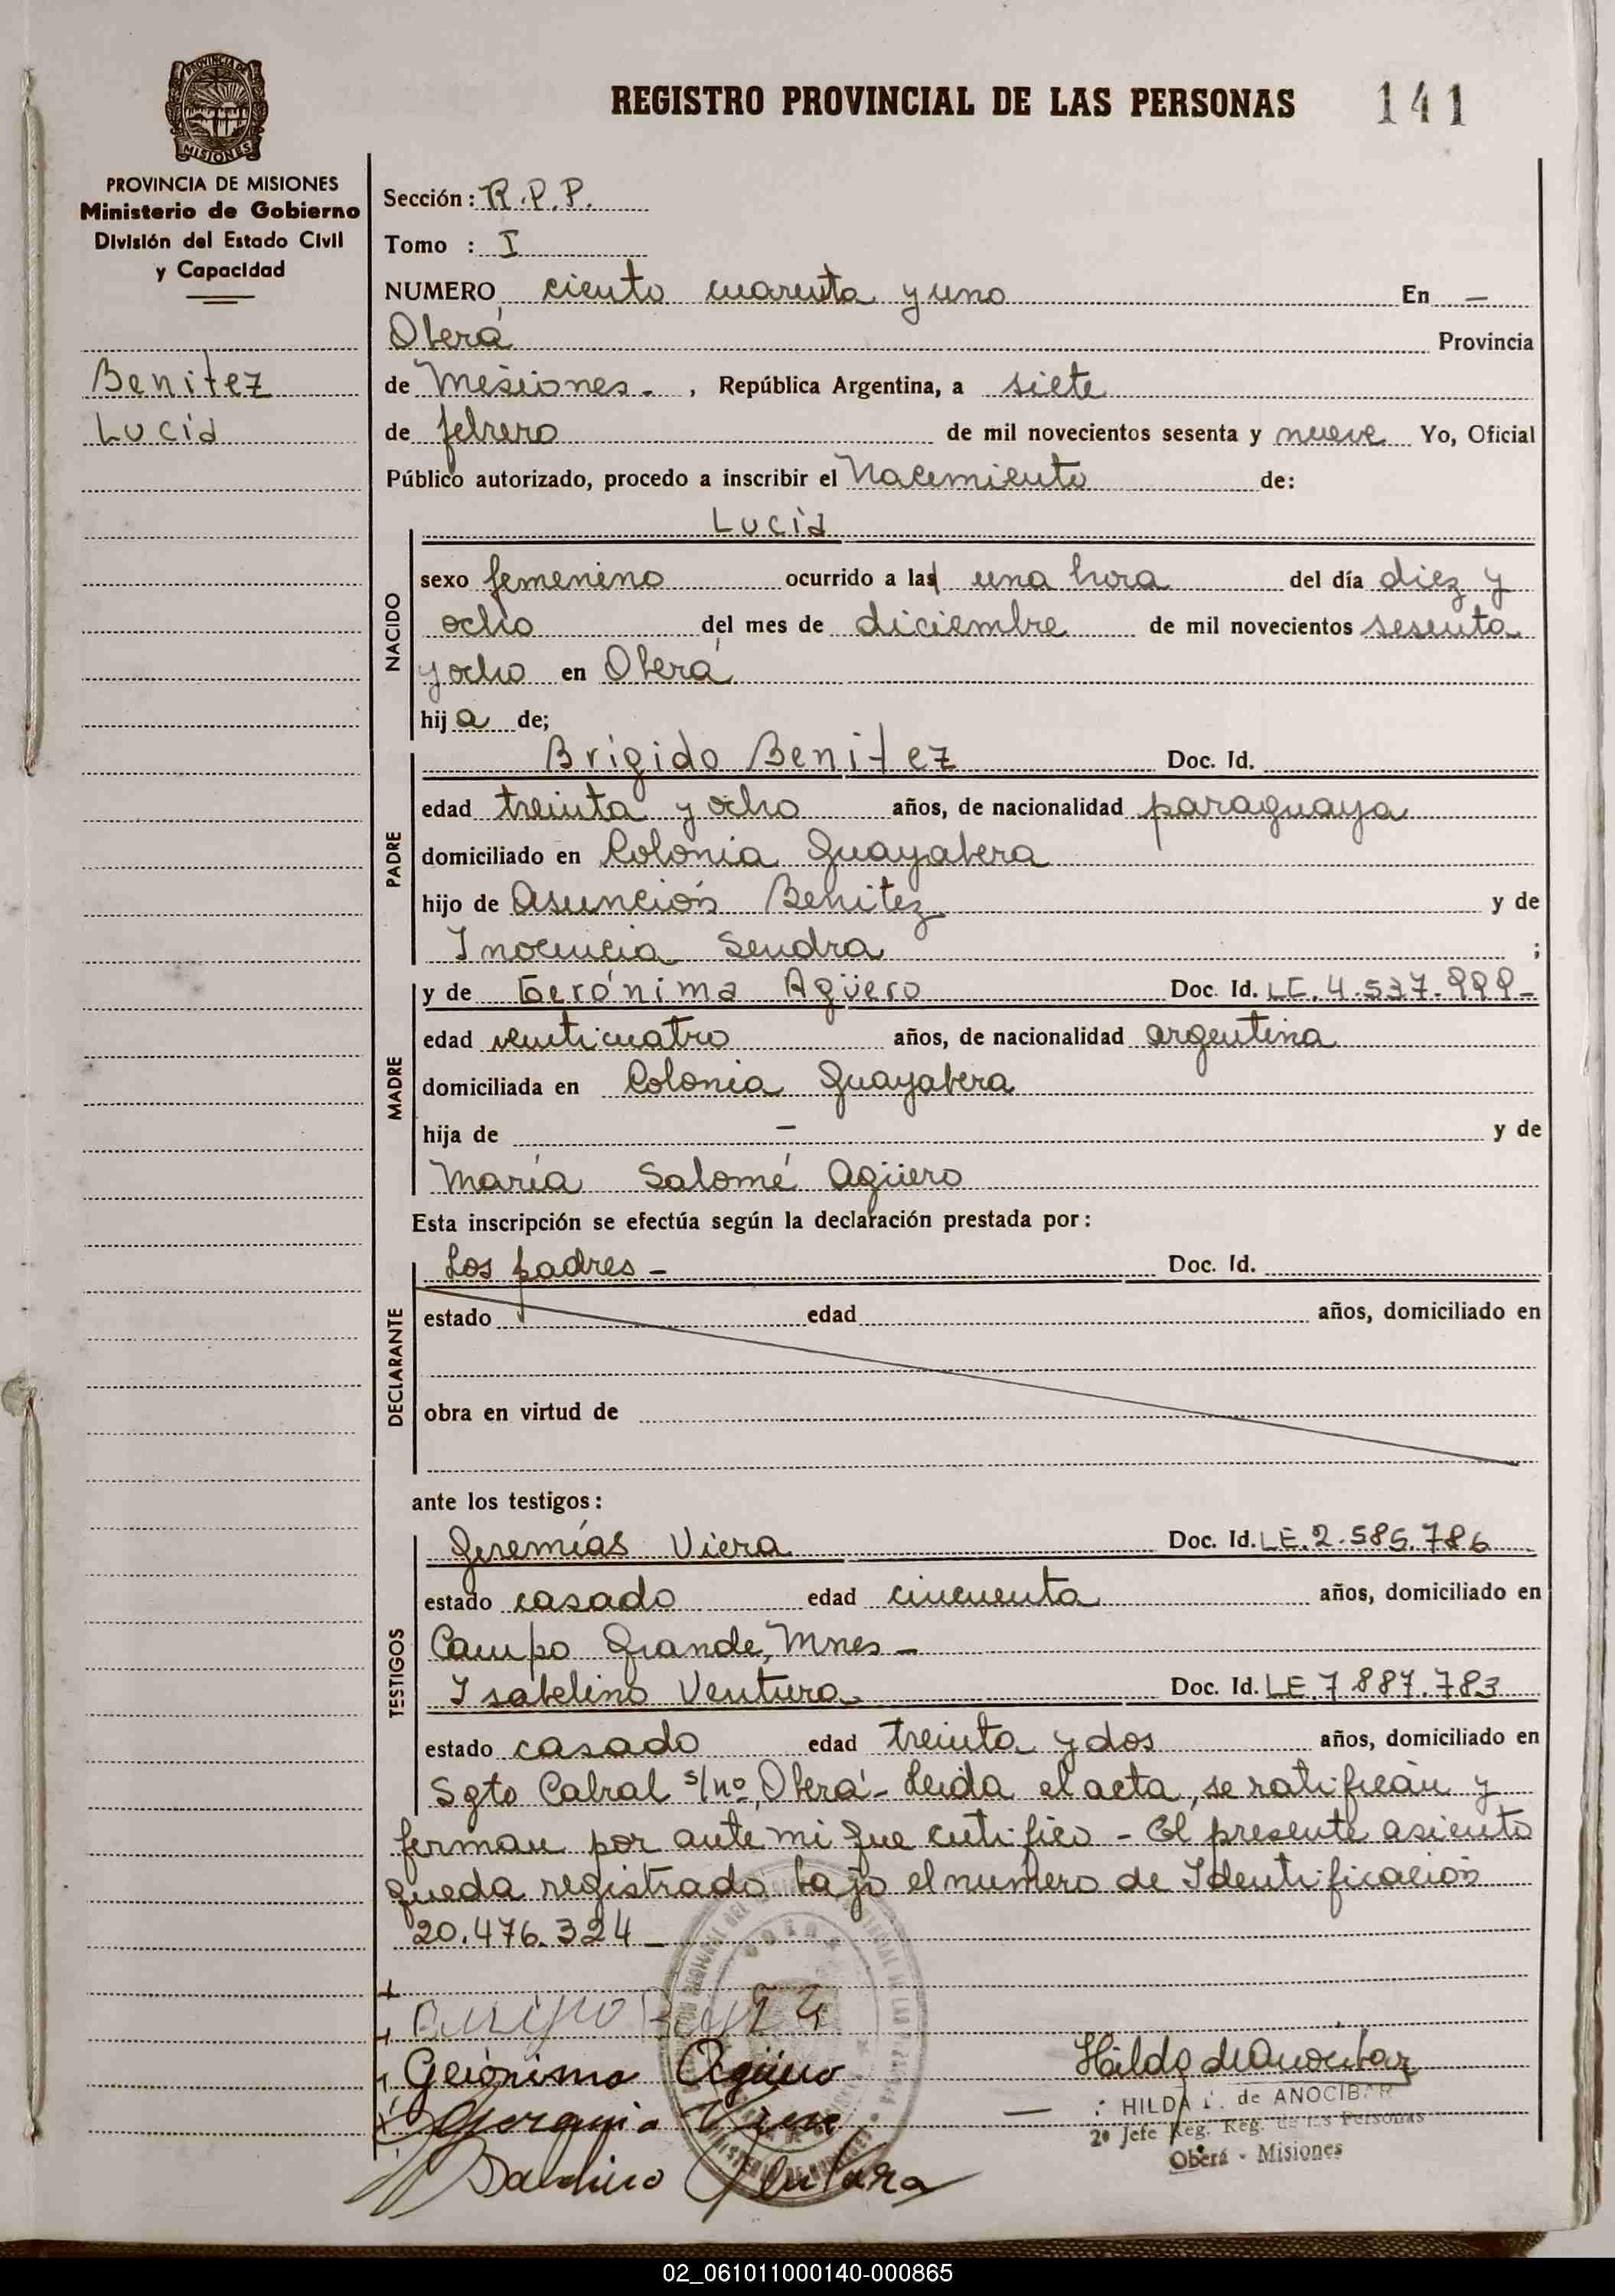 PROVINCIA DE
MISIONES
REGISTRO PROVINCIAL DE LAS PERSONAS 141
PROVINCIA DE MISIONES
Ministerio de Gobierno
División del Estado Civil
y Capacidad
Benitez
Lucía
Sección: R.P.P.
Tomo : I
NUMERO ciento cuarenta y uno En —
Oberá Provincia
de Misiones - , República Argentina, a siete
de febrero de mil novecientos sesenta y nueve Yo, Oficial
Público autorizado, procedo a inscribir el Nacimiento de:
Lucía
NACIDO
sexo femenino ocurrido a las una hora del día diez y
ocho del mes de diciembre de mil novecientos sesenta
y ocho en Oberá
hija de;
PADRE
Brígido Benitez Doc. Id.
edad treinta y ocho años, de nacionalidad paraguaya
domiciliado en Colonia Guayabera
hijo de Asunción Benitez y de
Inocencia Sendra ;
MADRE
y de Gerónima Agüero Doc. Id. LC. 4.537.999-
edad venticuatro años, de nacionalidad argentina
domiciliada en Colonia Guayabera
hija de — y de
María Salomé Agüero
Esta inscripción se efectúa según la declaración prestada por:
DECLARANTE
Los padres - Doc. Id.
estado edad años, domiciliado en
obra en virtud de
ante los testigos:
TESTIGOS
Jeremías Viera Doc. Id. LE. 2.585.786
estado casado edad cincuenta años, domiciliado en
Campo Grande, Mnes -
Isabelino Ventura Doc. Id. LE. 7.887.783
estado casado edad treinta y dos años, domiciliado en
Sgto Cabral s/nº, Oberá - Leída el acta, se ratifican y
firman por ante mi que certifico - El presente asiento
queda registrado bajo el número de Identificación
20.476.324 -
Gerónima Agüero
Hilda de Anocibar
HILDA de ANOCIBAR
2º Jefe Reg. Reg. de las Personas
Oberá - Misiones
02_061011000140-000865